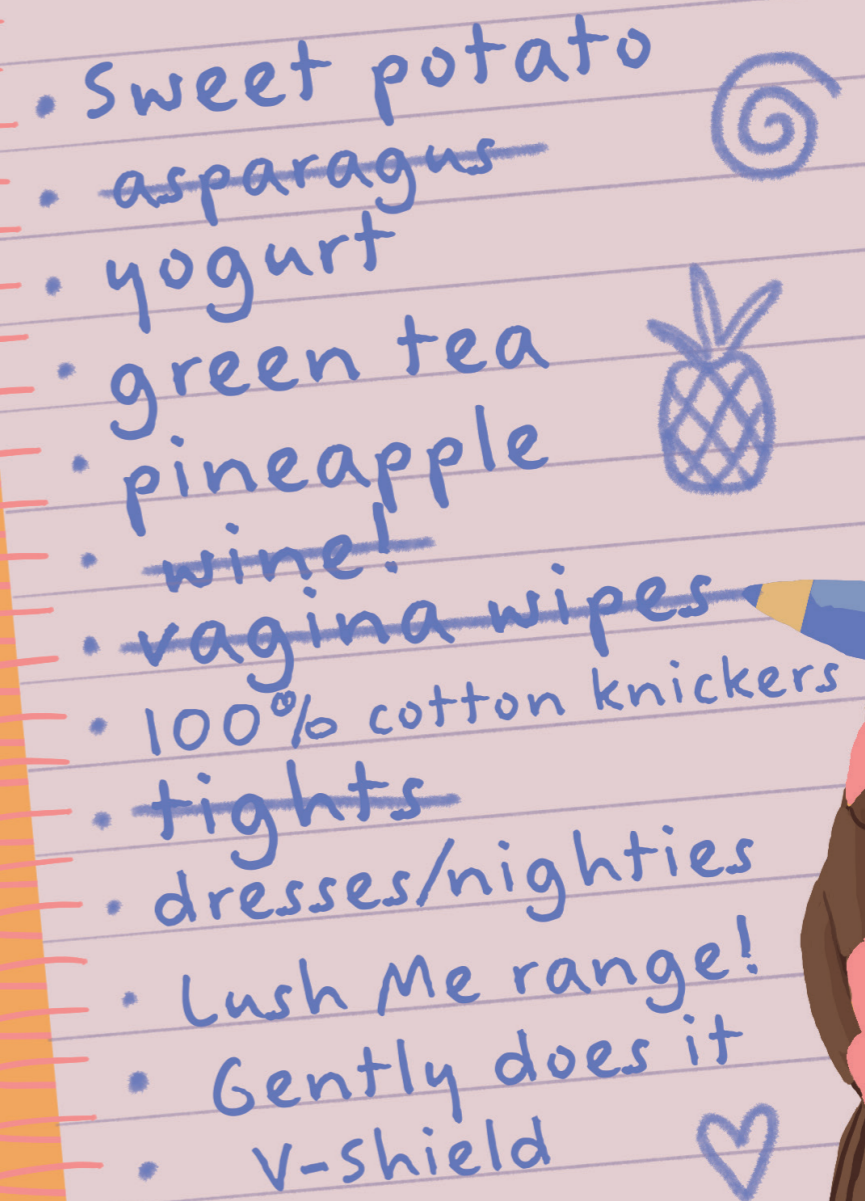 • Sweet potato
• asparagus
• yogurt
• green tea
• pineapple
• wine!
• vagina wipes
• 100% cotton knickers
• tights
• dresses/nighties
• Lush Me range!
• Gently does it
• V-Shield